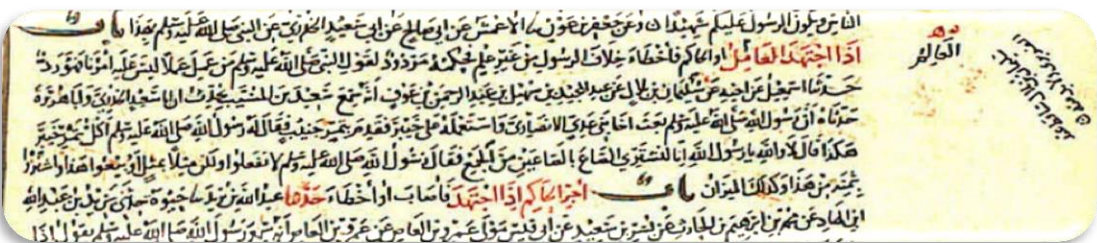 الناس ويكون الرسول عليكم شهيدا وعن جعفر بن عون نا الاعمش عن ابي صالح عن ابي سعيد الخدري عن النبي صلى الله عليه وسلم بهذا باب
اذا اجتهد العامل او الحاكم فاخطاء خلاف الرسول من غير علم فحكمه مردود لقول النبي صلى الله عليه وسلم من عمل عملا ليس عليه امرنا فهو رد
حدثنا اسمعيل عن اخيه عن سليمن بن بلال عن عبد المجيد بن سهيل بن عبد الرحمن بن عوف انه سمع سعيد بن المسيب يحدث ان ابا سعيد الخدري وابا هريرة
حدثاه ان رسول الله صلى الله عليه وسلم بعث اخا بني عدي الانصاري واستعمله على خيبر فقدم بتمر جنيب فقال له رسول الله صلى الله عليه وسلم اكل تمر خيبر
هكذا قال لا والله يا رسول الله انا لنشتري الصاع بالصاعين من الجمع فقال رسول الله صلى الله عليه وسلم لا تفعلوا ولكن مثلا بمثل او بيعوا هذا واشتروا
بثمنه من هذا وكذلك الميزان باب اجر الحاكم اذا اجتهد فاصاب او اخطاء حدثنا عبد الله بن يزيد نا حيوة حدثني يزيد بن عبد الله
ابن الهاد عن محمد بن ابرهيم بن الحارث عن بسر بن سعيد عن ابي قيس مولى عمرو بن العاص عن عمرو بن العاص انه سمع رسول الله صلى الله عليه وسلم يقول اذا
العالم